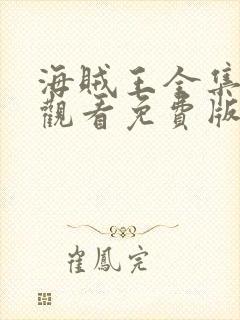 海賊王全集
觀看免費版
崔鳳完